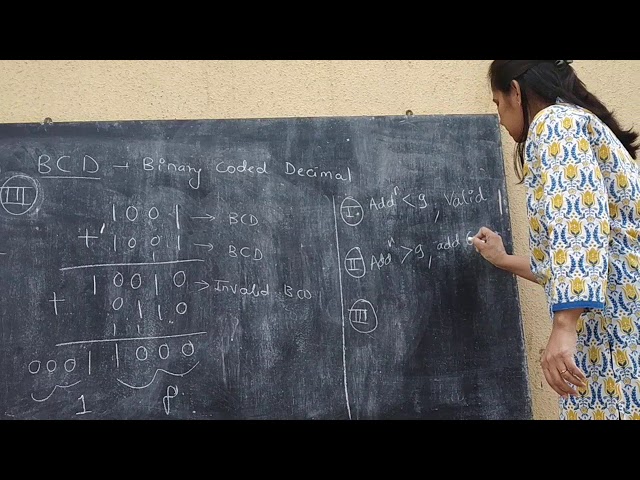 BCD → Binary Coded Decimal
III
1001 → BCD
+ 1001 → BCD
10010 → Invalid BCD
+ 0110
0001 1000
1 8
I. Addⁿ < 9, Valid
II Addⁿ > 9, add
III